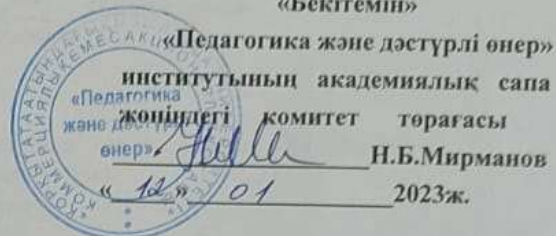 «Бекітемін»
«Педагогика және дәстүрлі өнер»
институтының академиялық сапа
жөніндегі комитет төрағасы
Н.Б.Мирманов
«12» 01 2023ж.
«Педагогика
және дәстүрлі
өнер»